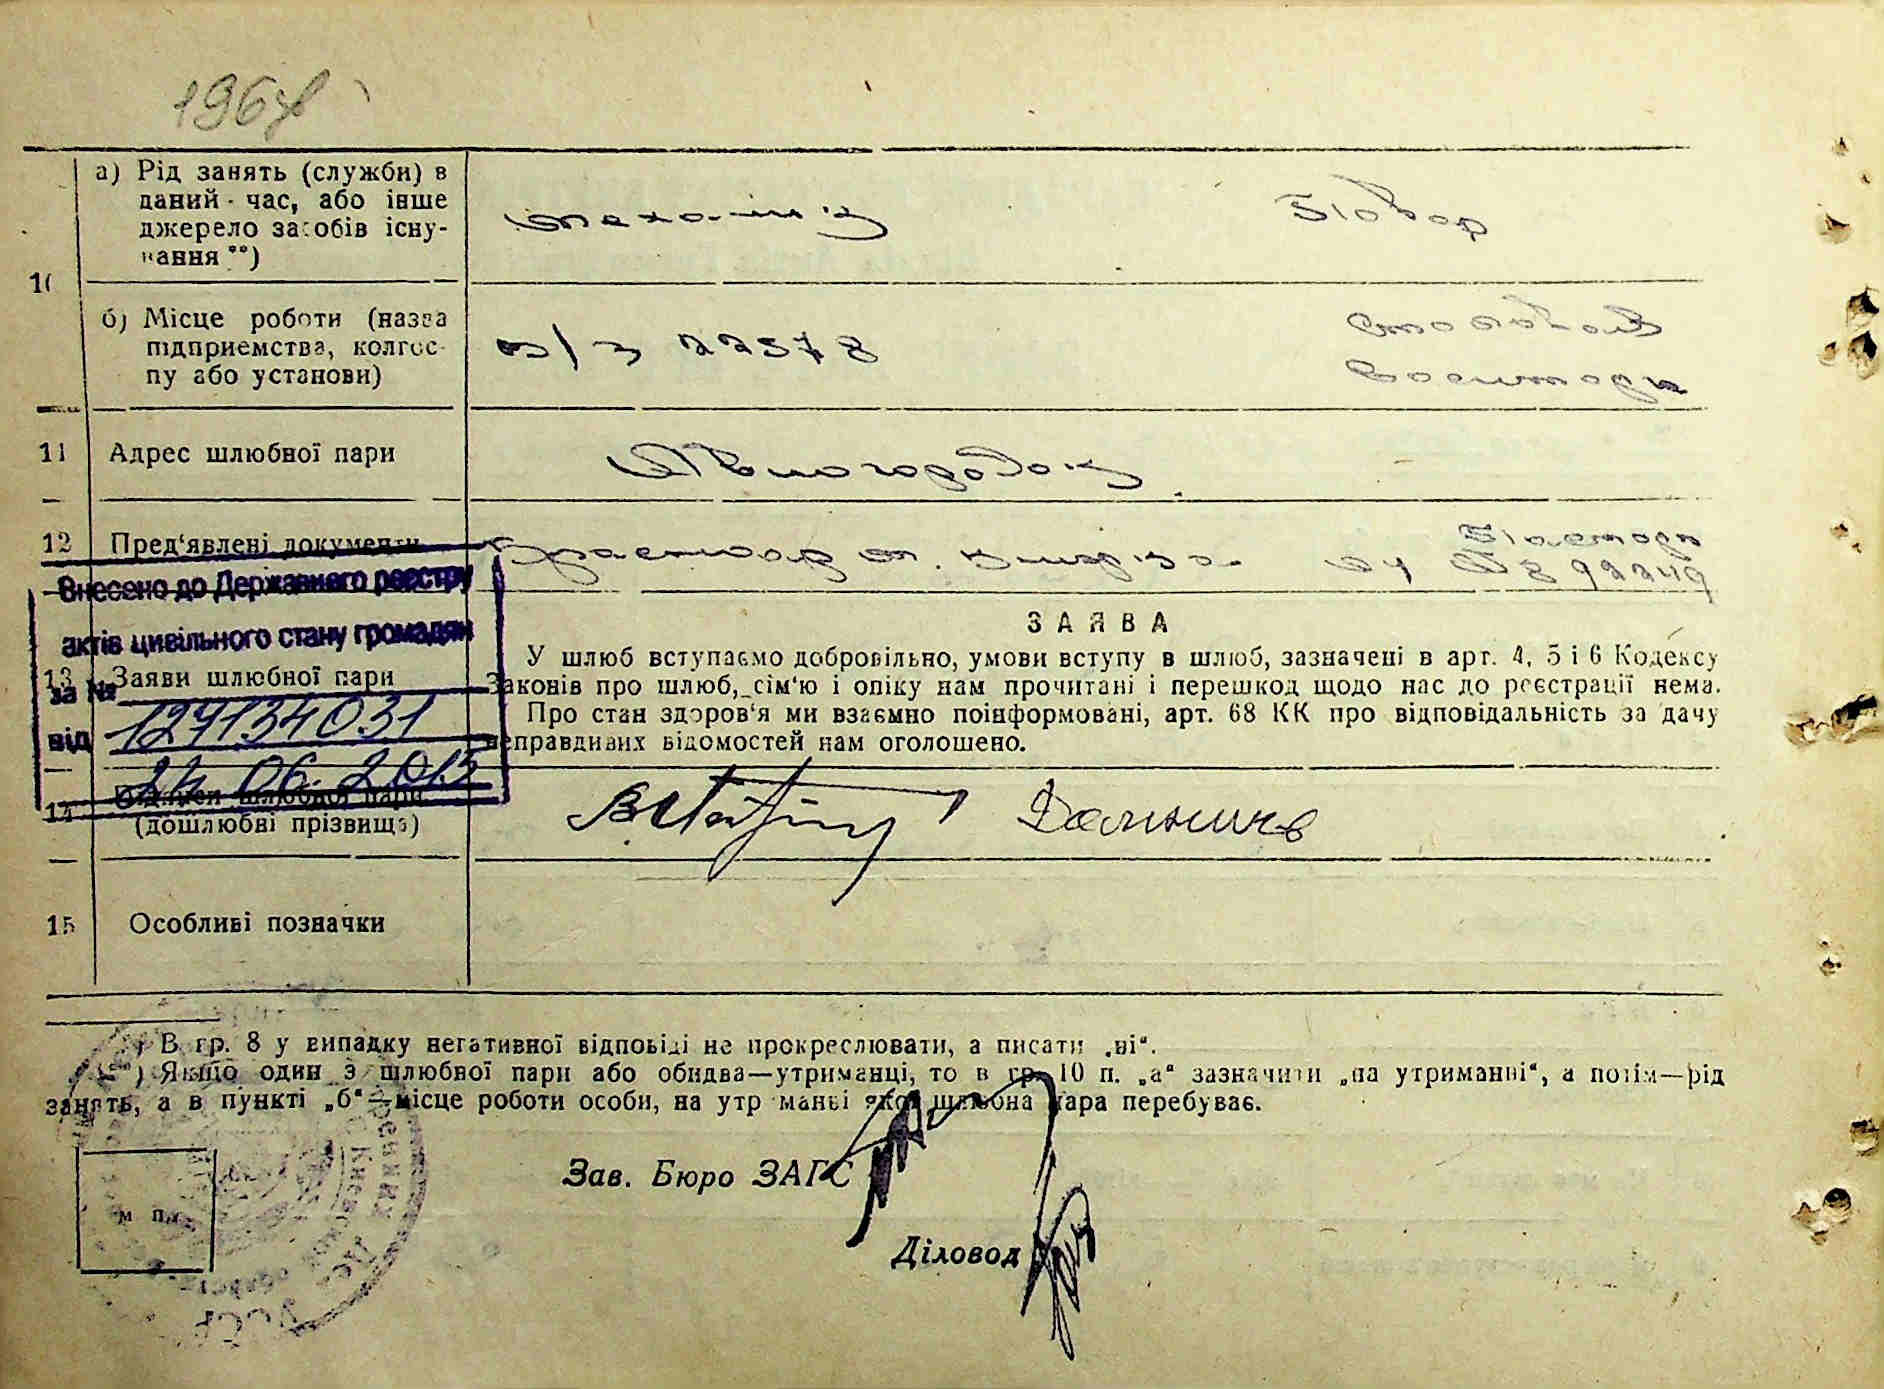 196
а) Рід занять (служби) в
даний час, або інше
джерело засобів існу-
вання **)
механик
Повар
10
б) Місце роботи (назва
підприемства, колгос-
пу або установи)
в/ч 22578
столовая
военторга
11 Адрес шлюбної пари
Авиогородок
12 Пред‘явлені документи
Внесено до Державного реєстру
актів цивільного стану громадян
за №
127134031
від
06. 2013
ЗАЯВА
13 Заяви шлюбної пари
У шлюб вступаємо добровільно, умови вступу в шлюб, зазначені в арт. 4, 5 і 6 Кодексу
Законів про шлюб, сім‘ю і опіку нам прочитані і перешкод щодо нас до реєстрації нема.
Про стан здоров‘я ми взаємно поінформовані, арт. 68 КК про відповідальність за дачу
неправдивих відомостей нам оголошено.
14 Підписи шлюбної пари
(дошлюбні прізвища)
15 Особливі позначки
*) В гр. 8 у випадку негативної відповіді не прокреслювати, а писати „ні“.
**) Якщо один з шлюбної пари або обидва—утриманці, то в гр. 10 п. „а“ зазначити „на утриманні“, а потім—рід
занять, а в пункті „б“—місце роботи особи, на утриманні якої шлюбна пара перебуває.
Зав. Бюро ЗАГС
м п.
Діловод